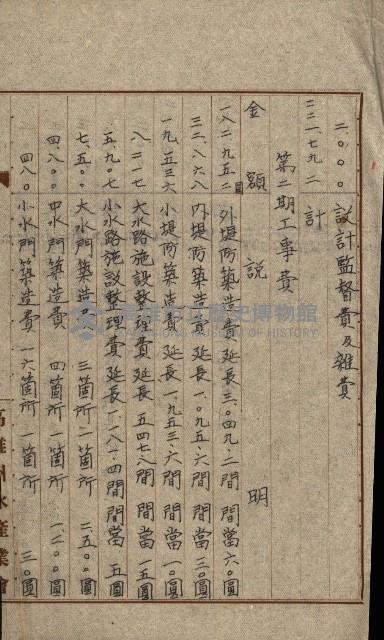 二.〇〇〇 設計監督費及雑費
二二一.七九二 計
第二期工事費
金額 説明
一八二.九五二 外堤防築造費延長三.〇四九.二間 間當 六〇圓
三二.八六八 内堤防築造費 延長一.〇九五.六間 間當 三〇圓
一九.五三六 小堤防築造費 延長一.九五三.六間 間當 一〇圓
八二一七 大水路施設整理費延長 五四七.八間 間當 一五圓
五.九〇七 小水路施設整理費延長一.一八一.四間 間當 五圓
七.五〇〇 大水門築造費 三箇所 一箇所 二.五〇〇圓
四.八〇〇 中水門築造費 四箇所 一箇所 一.二〇〇圓
四八〇 小水門築造費 一六箇所 一箇所 三〇圓
高雄州水産業會
高雄市立歷史博物館
MUSEUM OF HISTORY